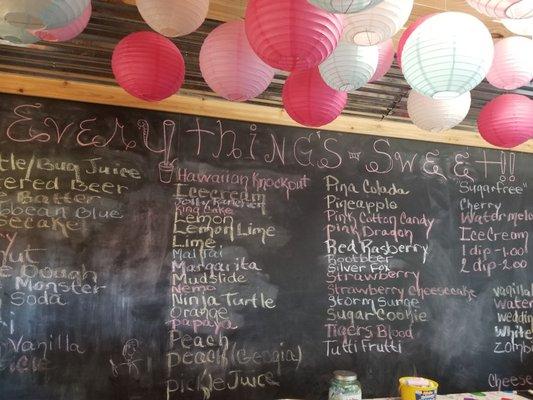 Everything's Sweet!!
tle/Bug Juice
tered Beer
Batter
bbean Blue
secake
nut
e Dough
Monster
Soda
Vanilla
sicle
Hawaiian Knockout
Icecream
Jolly Rancher
King Cake
Lemon
Lemon Lime
Lime
Mai Tai
Margarita
Mudslide
Nemo
Ninja Turtle
Orange
Papaya
Peach
Peach (Georgia)
Pickle Juice
Pina Colada
Pineapple
Pink Cotton Candy
Pink Dragon
Red Rasberry
Rootbeer
Silver Fox
Strawberry
Strawberry Cheesecake
Storm Surge
Sugar Cookie
Tigers Blood
Tutti Frutti
"Sugarfree"
Cherry
Watermelo
IceCream
1 dip -1.00
2 dip -2.00
vanill
Water
weddin
White
Zomb
Cheese